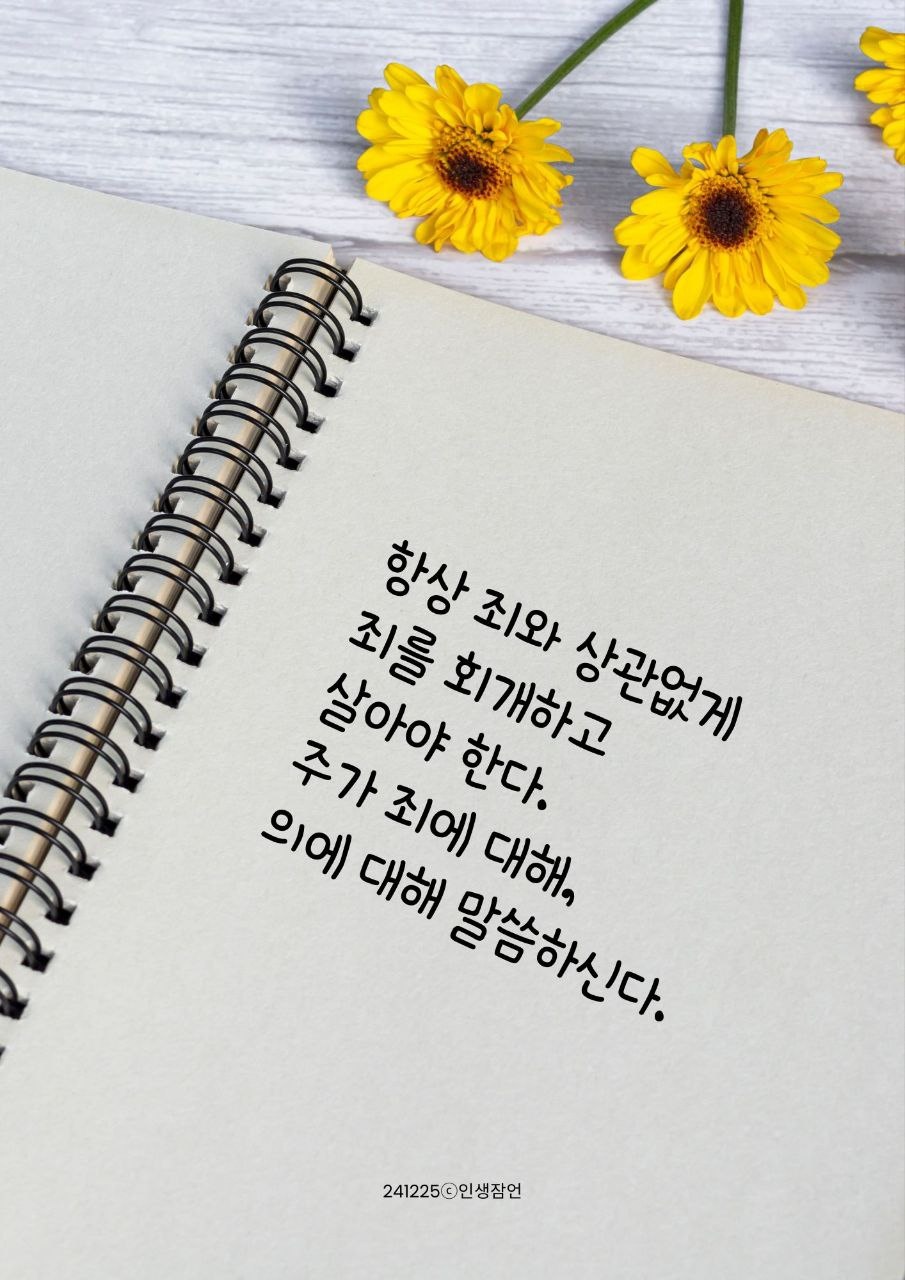 항상 죄와 상관없게
죄를 회개하고
살아야 한다.
주가 죄에 대해,
의에 대해 말씀하신다.
241225ⓒ인생잠언